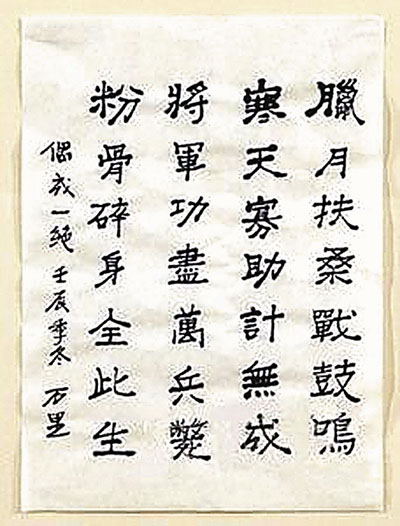 臘月扶桑戰鼓鳴
寒天寡助計無成
將軍功盡萬兵斃
粉骨碎身全此生
偶成一絕 壬辰季冬 万里